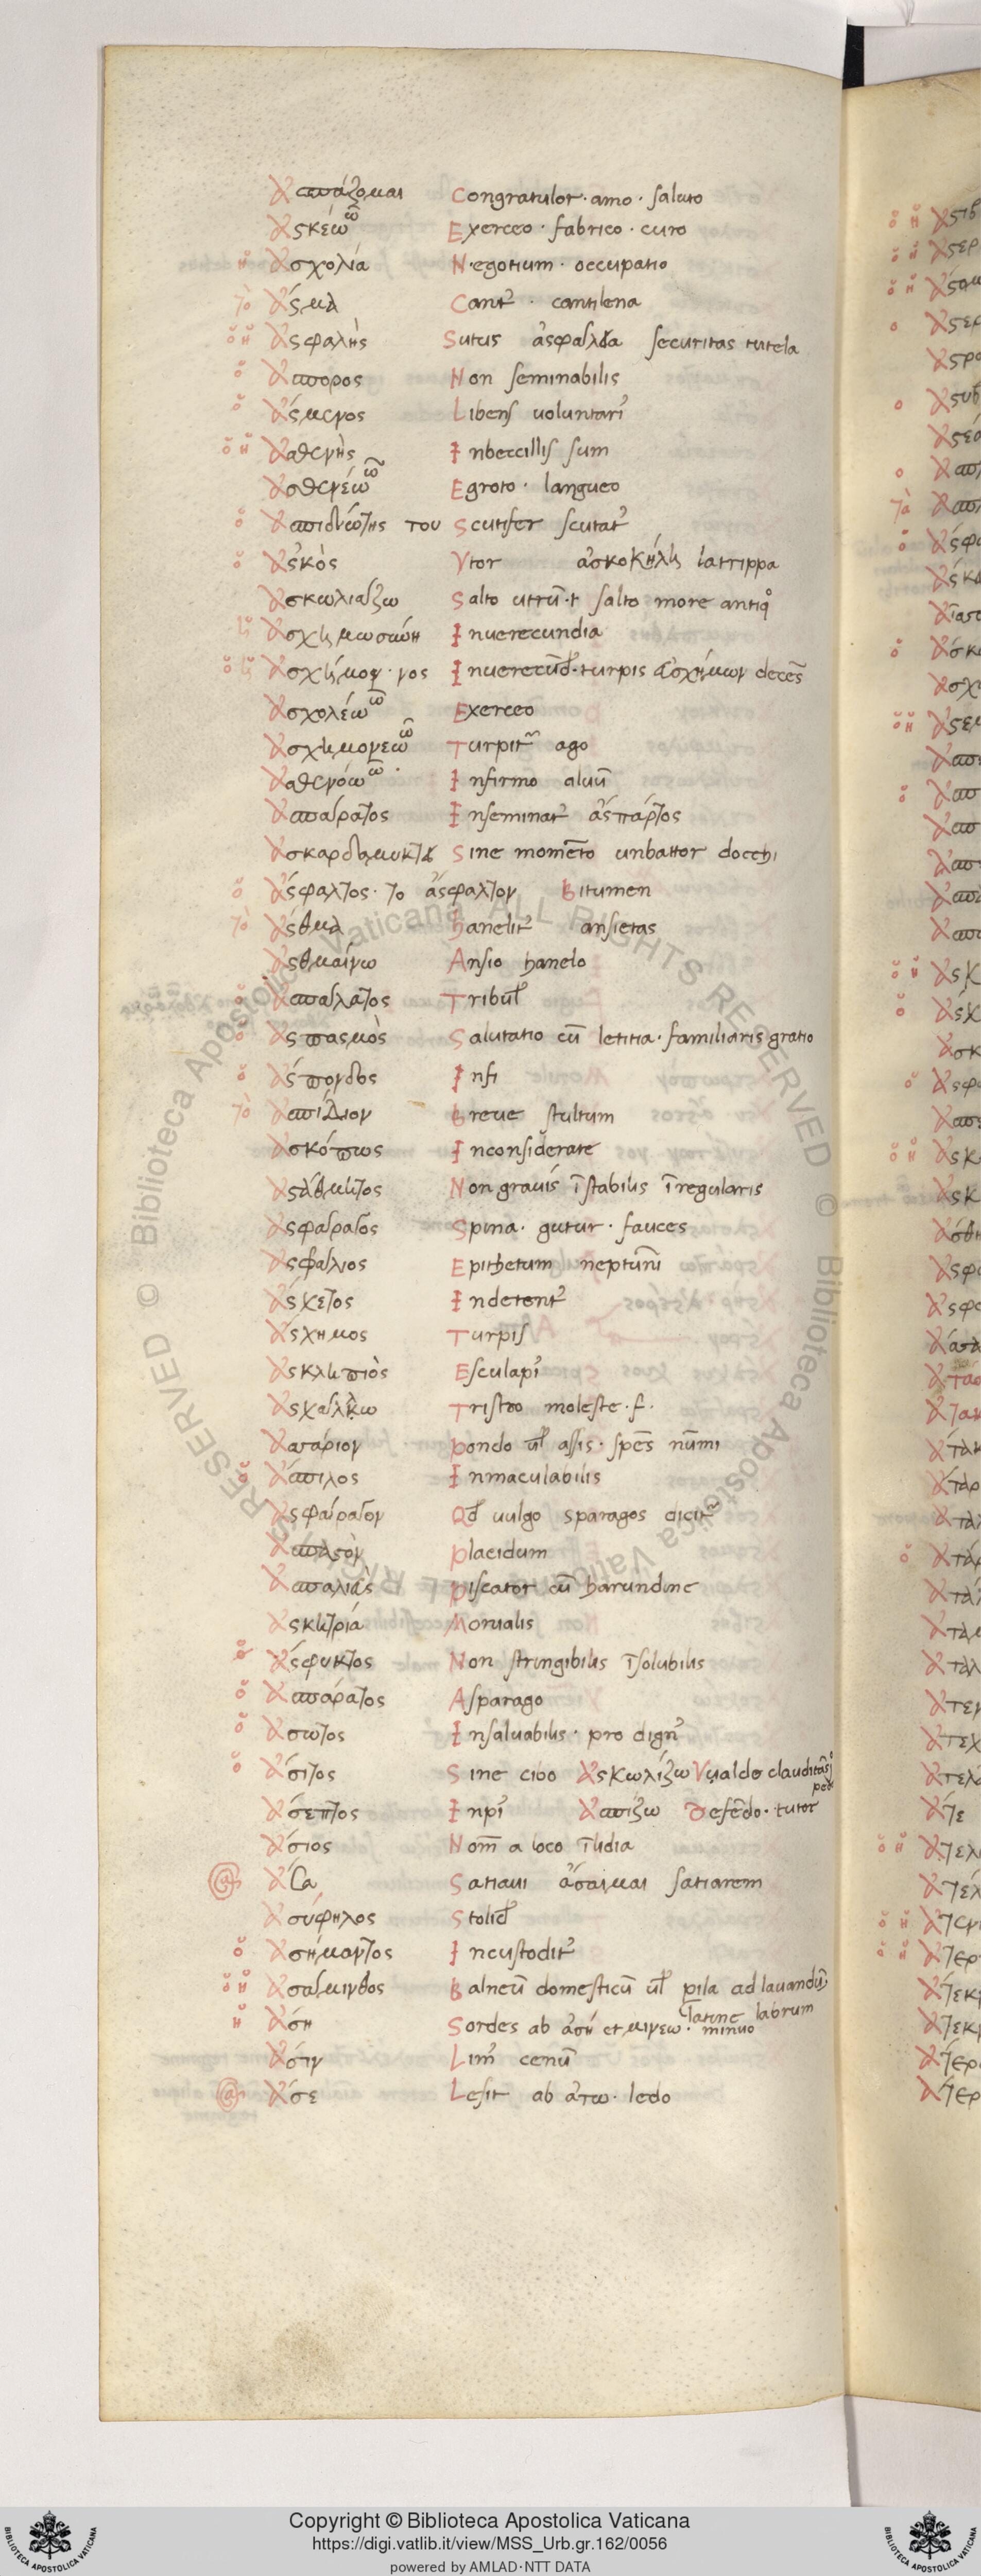 Ἀσπάζομαι Congratulor · amo · saluto
Ἀσκέω ῶ Exerceo · fabrico · curo
ἡ Ἀσχολία Negotium · occupatio
τὸ Ἄσμα Cant᷒ · cantilena
ὁ ἡ Ἀσφαλὴς Tutus ἀσφαλεια securitas tutela
ὁ Ἄσπορος Non seminabilis
ὁ Ἄσμενος Libens voluntari᷒
ὁ ἡ Ἀσθενὴς Inbecillis sum
Ἀσθενέω ῶ Egroto · langueo
ὁ Ἀσπιδιώτης του Scutifer scutat᷒
ὁ Ἀσκὸς Utor ἀσκοκήλη la trippa
Ἀσκωλιάζω Salto utrũ · salto more antiq°
ἡ Ἀσχημοσύνη Inverecundia
ὁ ἡ Ἀσχήμον · νος Inverecũd᷒ · turpis ἀσχήμων decẽs
Ἀσχολέω ῶ Exerceo
Ἀσχημονεω ῶ Turpit᷒ ago
Ἀσθενόω ῶ Infirmo
Ἀσπαίρατος Inseminat᷒ ἄσπαρτος
Ἀσκαρδαμυκτεί Sine momẽto docchi
ὁ Ἄσφαλτος · το ἄσφαλτον Bitumen
τὸ Ἄσθμα hanelit᷒ ansietas
Ἀσθμαίνω Ansio hanelo
ὁ Ἀσπάλατος Tribul᷒
ὁ Ἀσπασμὸς Salutatio cũ letitia · familiaris gratio
ὁ Ἄσπονδος Infi
τὸ Ἀσπίδιον Breve scultum
Ἀσκόπως Inconsiderate
Ἀστάθμητος Non gravis ĩstabilis ĩregularis
Ἀσφάραγος Spina · gutur · fauces
Ἀσφάλιος Epithetum neptũni
Ἄσχετος Indetent᷒
Ἄσχημος Turpis
Ἀσκληπιὸς Esculapi᷒
Ἀσχάλλω Tristor moleste · f ·
Ἀσσάριον pondo ul᷒ assis · spẽs nũmi
ὁ Ἄσπιλος Inmaculabilis
Ἀσφαίραγον Qd᷒ vulgo sparagos dicit᷒
Ἀσπαστὸν placidum
Ἀσπαλιὰς piscator cũ harundine
Ἀσκητριά Monialis
ὁ Ἄσφυκτος Non stringibilis ĩsolubilis
ὁ Ἀσπάρατος Asparago
ὁ Ἄσωτος Insalvabilis · pro dign᷒
ὁ Ἄσιτος Sine cibo Ἀσκωλίζω clauditãs
ped᷒
Ἄσεπτος Inpi᷒ Ἀσπίζω Defẽdo · tutor
Ἄσιος Nom̃ a loco ĩ lidia
Ἄσα Satiavi ἄσαιμαι satiarem
Ἀσύφηλος Stolid᷒
ὁ Ἀσήμαντος Incustodit᷒
ὁ ἡ Ἀσάμινθος Balneũ domesticũ ul᷒ pila ad lavandũ
latine labrum
ἡ Ἄση Sordes ab ἀσή et μινεω · minuo
Ἄσιν Lim᷒ cenũ
Ἄσε Lesit ab ἀτω · ledo
Copyright © Biblioteca Apostolica Vaticana
https://digi.vatlib.it/view/MSS_Urb.gr.162/0056
powered by AMLAD·NTT DATA